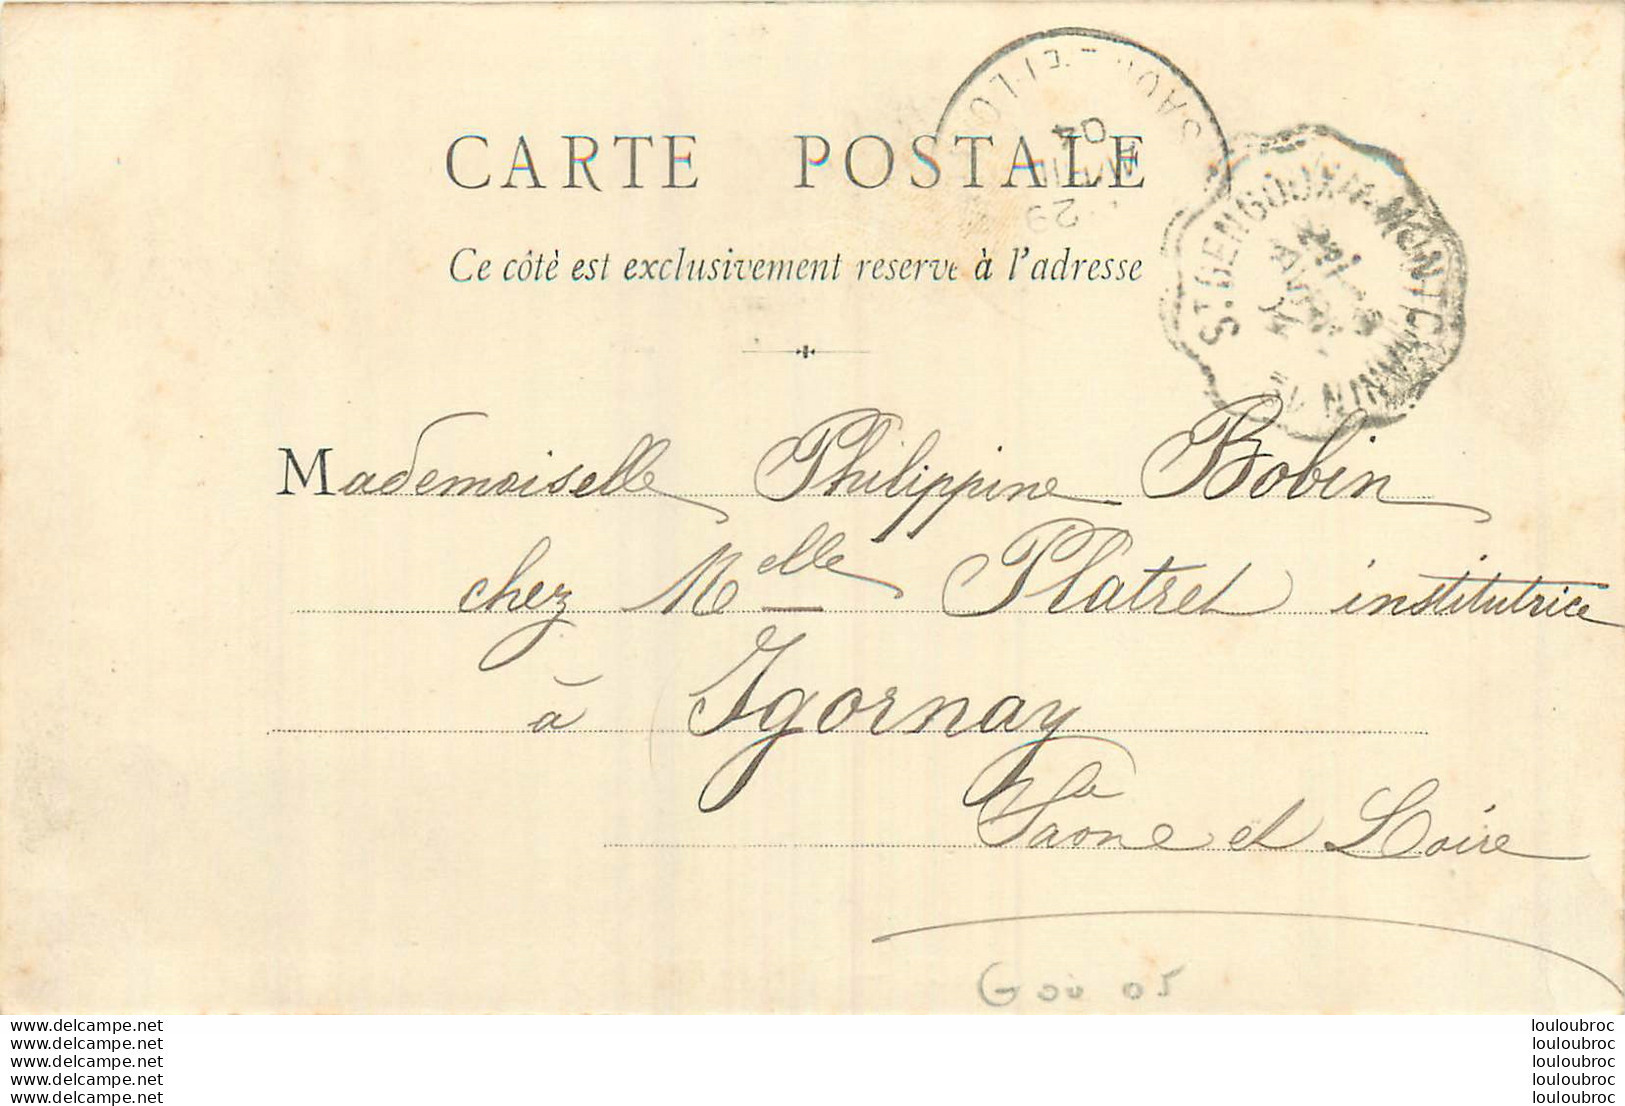 CARTE POSTALE
Ce côté est exclusivement reservé à l'adresse
29
04
ST. GENGOUX
Mademoiselle Philippine Bobin
chez Melle Platret institutrice
à Igornay
Saone et Loire
Gou 05
www.delcampe.net
www.delcampe.net
www.delcampe.net
www.delcampe.net
www.delcampe.net
louloubroc
louloubroc
louloubroc
louloubroc
louloubroc